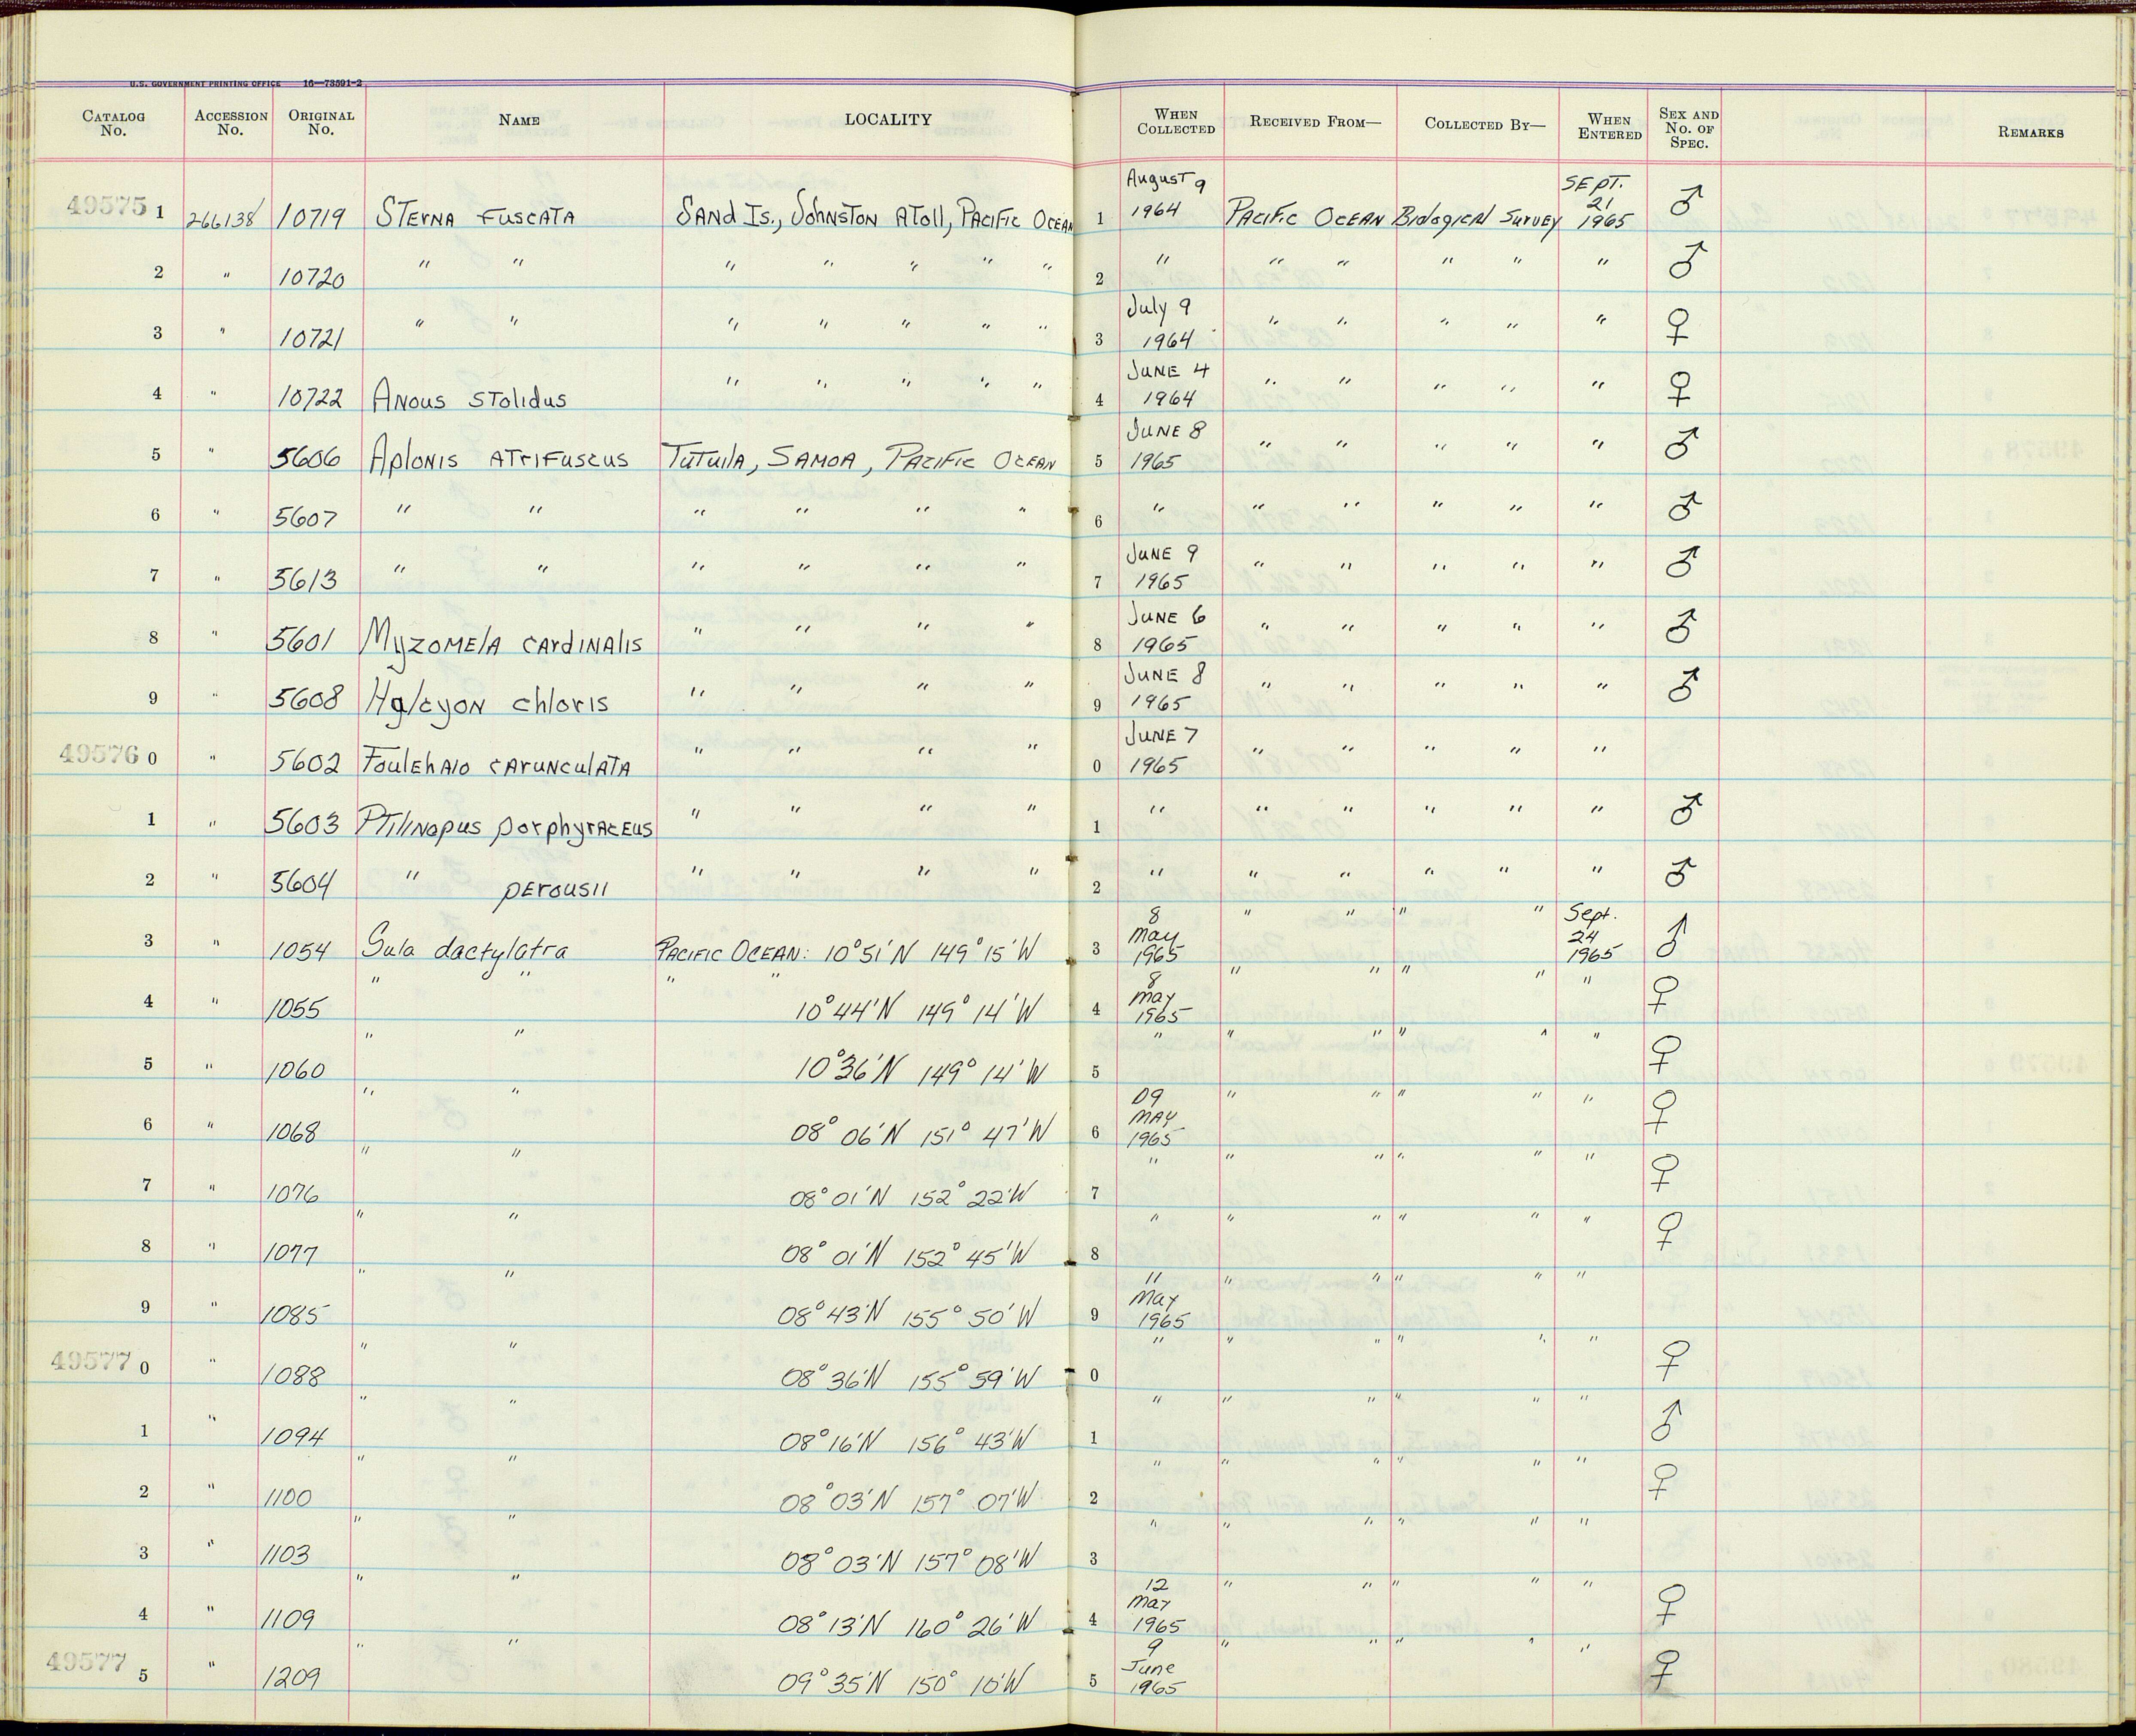 U.S. GOVERNMENT PRINTING OFFICE 16—73591-2
CATALOG No. ACCESSION No. ORIGINAL No. NAME LOCALITY WHEN COLLECTED RECEIVED FROM— COLLECTED BY— WHEN ENTERED SEX AND No. OF SPEC. REMARKS
49575 1 266138 10719 STErNA FUSCATA SANd Is., JohNSTON AToll, PACIFIC OCEAN 1 August 9 1964 PACIFIC OCEAN BiologicAl SurvEY SEPT. 21 1965 ♂
2 " 10720 " " " " " " " 2 " " " " " " ♂
3 " 10721 " " " " " " " 3 July 9 1964 " " " " " ♀
4 " 10722 ANOUS STolidus " " " " " 4 JUNE 4 1964 " " " " " ♀
5 " 5606 AplONIS ATriFuscus TuTuilA, SAMOA, PACIFIC OCEAN 5 JUNE 8 1965 " " " " " ♂
6 " 5607 " " " " " " 6 " " " " " " ♂
7 " 5613 " " " " " " 7 JUNE 9 1965 " " " " " ♂
8 " 5601 MyzOMElA cArdiNAlis " " " " 8 JUNE 6 1965 " " " " " ♂
9 " 5608 HalcyON chloris " " " " 9 JUNE 8 1965 " " " " " ♂
49576 0 " 5602 FoulEhAIO cArunculATA " " " " 0 JUNE 7 1965 " " " " "
1 " 5603 PTiliNopus porphyrACEus " " " " 1 " " " " " " ♂
2 " 5604 " pErousii " " " " 2 " " " " " " ♂
3 " 1054 Sula dactylatra PACIFIC OCEAN: 10°51'N 149°15'W 3 8 May 1965 " " " " Sept. 24 1965 ♂
4 " 1055 " " " " 10°44'N 149°14'W 4 8 May 1965 " " " " " ♀
5 " 1060 " " 10°36'N 149°14'W 5 " " " " " " ♀
6 " 1068 " " 08°06'N 151°47'W 6 09 MAY 1965 " " " " " ♀
7 " 1076 " " 08°01'N 152°22'W 7 " " " " " " ♀
8 " 1077 " " 08°01'N 152°45'W 8 " " " " " " ♀
9 " 1085 " " 08°43'N 155°50'W 9 11 May 1965 " " " " "
49577 0 " 1088 " " 08°36'N 155°59'W 0 " " " " " " ♀
1 " 1094 " " 08°16'N 156°43'W 1 " " " " " " ♂
2 " 1100 " " 08°03'N 157°07'W 2 " " " " " " ♀
3 " 1103 " " 08°03'N 157°08'W 3 " " " " " "
4 " 1109 " " 08°13'N 160°26'W 4 12 May 1965 " " " " " ♀
49577 5 " 1209 " " 09°35'N 150°10'W 5 9 June 1965 " " " " " ♀